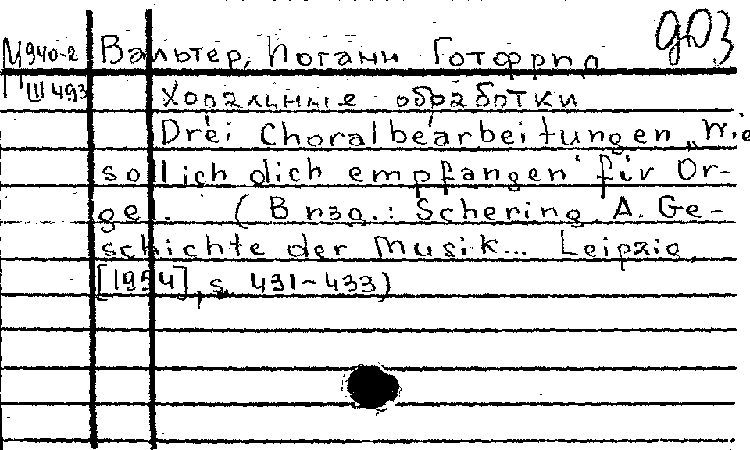 903
М940-2 Вальтер, Иоганн Готфрид
III 493 Хоральные обработки
Drei Choralbearbeitungen „Wie
soll ich dich empfangen" für Or-
gel. (В изд.: Schering A. Ge-
schichte der Musik... Leipzig,
[1954], s. 431-433)